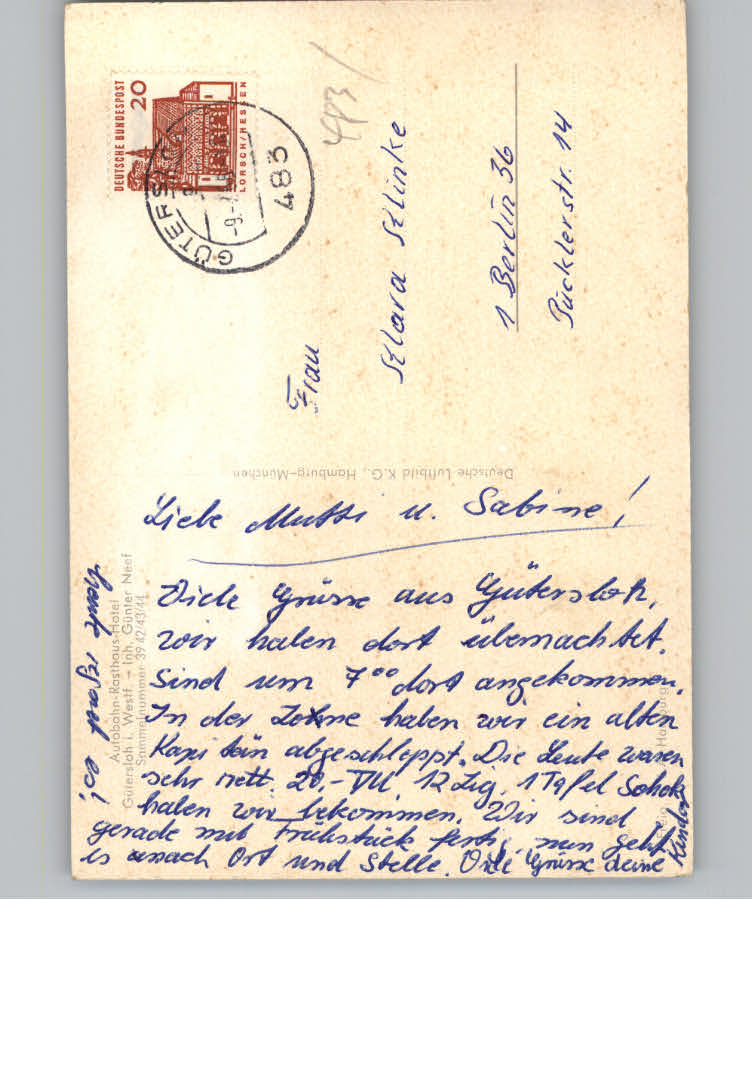 DEUTSCHE BUNDESPOST
20
LORSCH/HESSEN
GÜTERSL
483
483
Frau
Klara Klinke
1 Berlin 36
Pücklerstr. 14
Deutsche Luftbild K.G., Hamburg-München
Autobahn-Rasthaus-Hotel
Gütersloh i. Westf. - Inh. Günter Neef
Sammelnummer 39 42/43/44
Liebe Mutti u. Sabine!
Viele Grüsse aus Gütersloh,
wir haben dort übernachtet.
Sind um 7°° dort angekommen.
In der Zohne haben wir ein alten
Kapitän abgeschleppt. Die Leute waren
sehr nett. 20,- DM, 12 Zig. 1 Tafel Schok
haben wir bekommen. Wir sind
gerade mit Frühstück fertig, nun geht
es nach Ort und Stelle. Viele Grüsse deine
Kinder
heute regnet es!